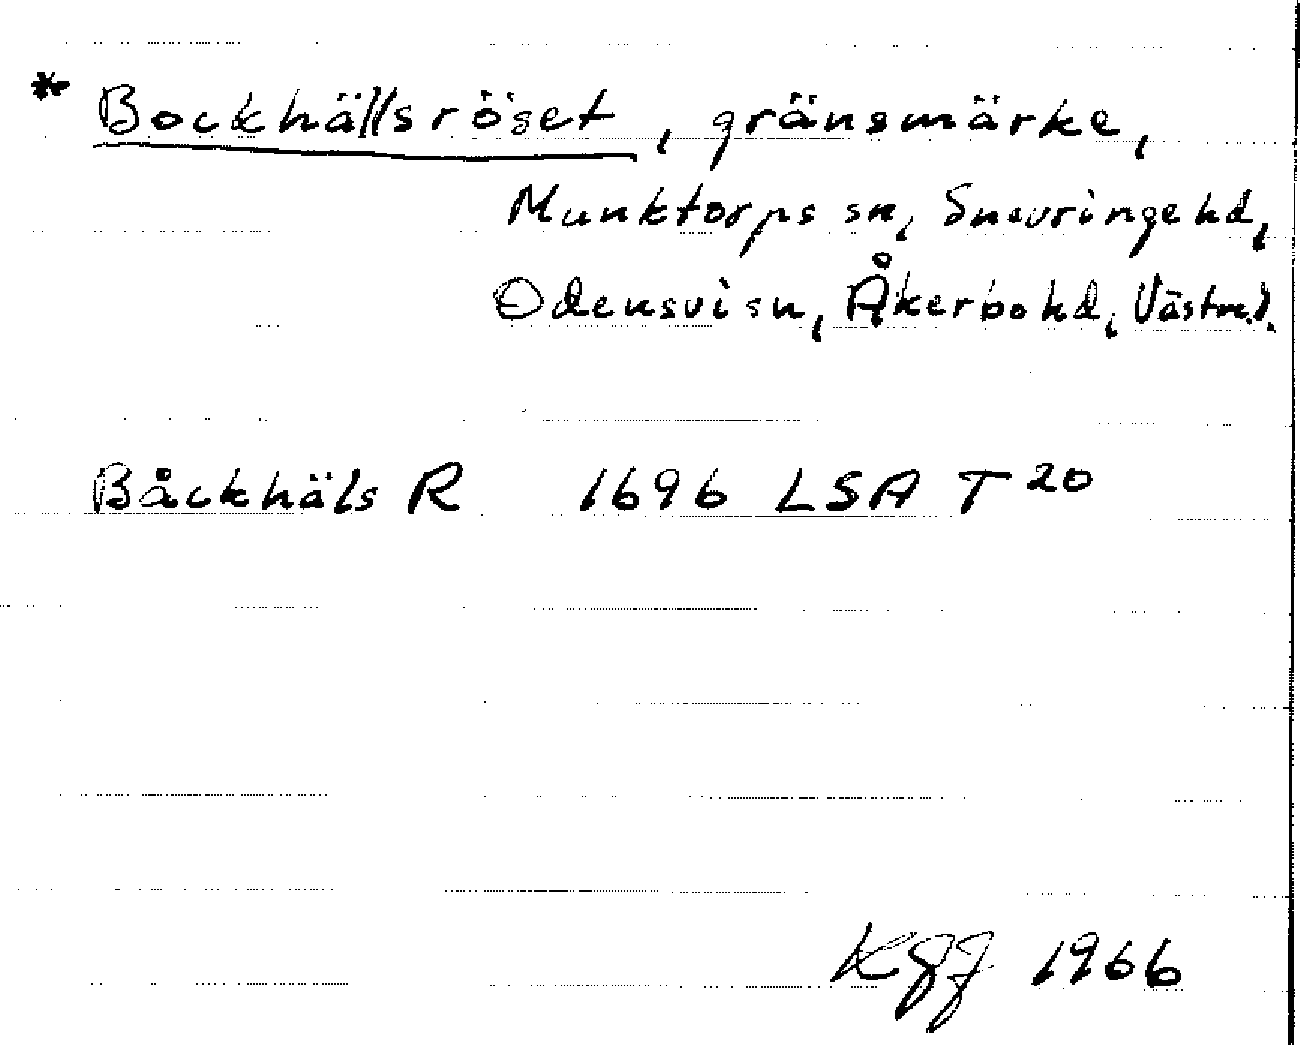 * Bockhällsröset, gränsmärke,
Munktorps sn, Snevringe hd,
Odensvi sn, Åkerbo hd, Västml.
Båckhäls R 1696 LSA T 20
KGJ 1966